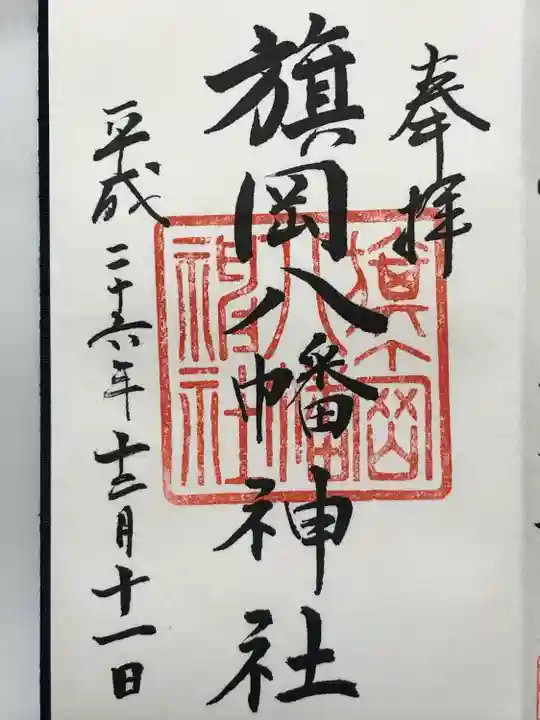 奉拝
旗岡八幡神社
旗岡八幡神社
平成二十六年十二月十一日